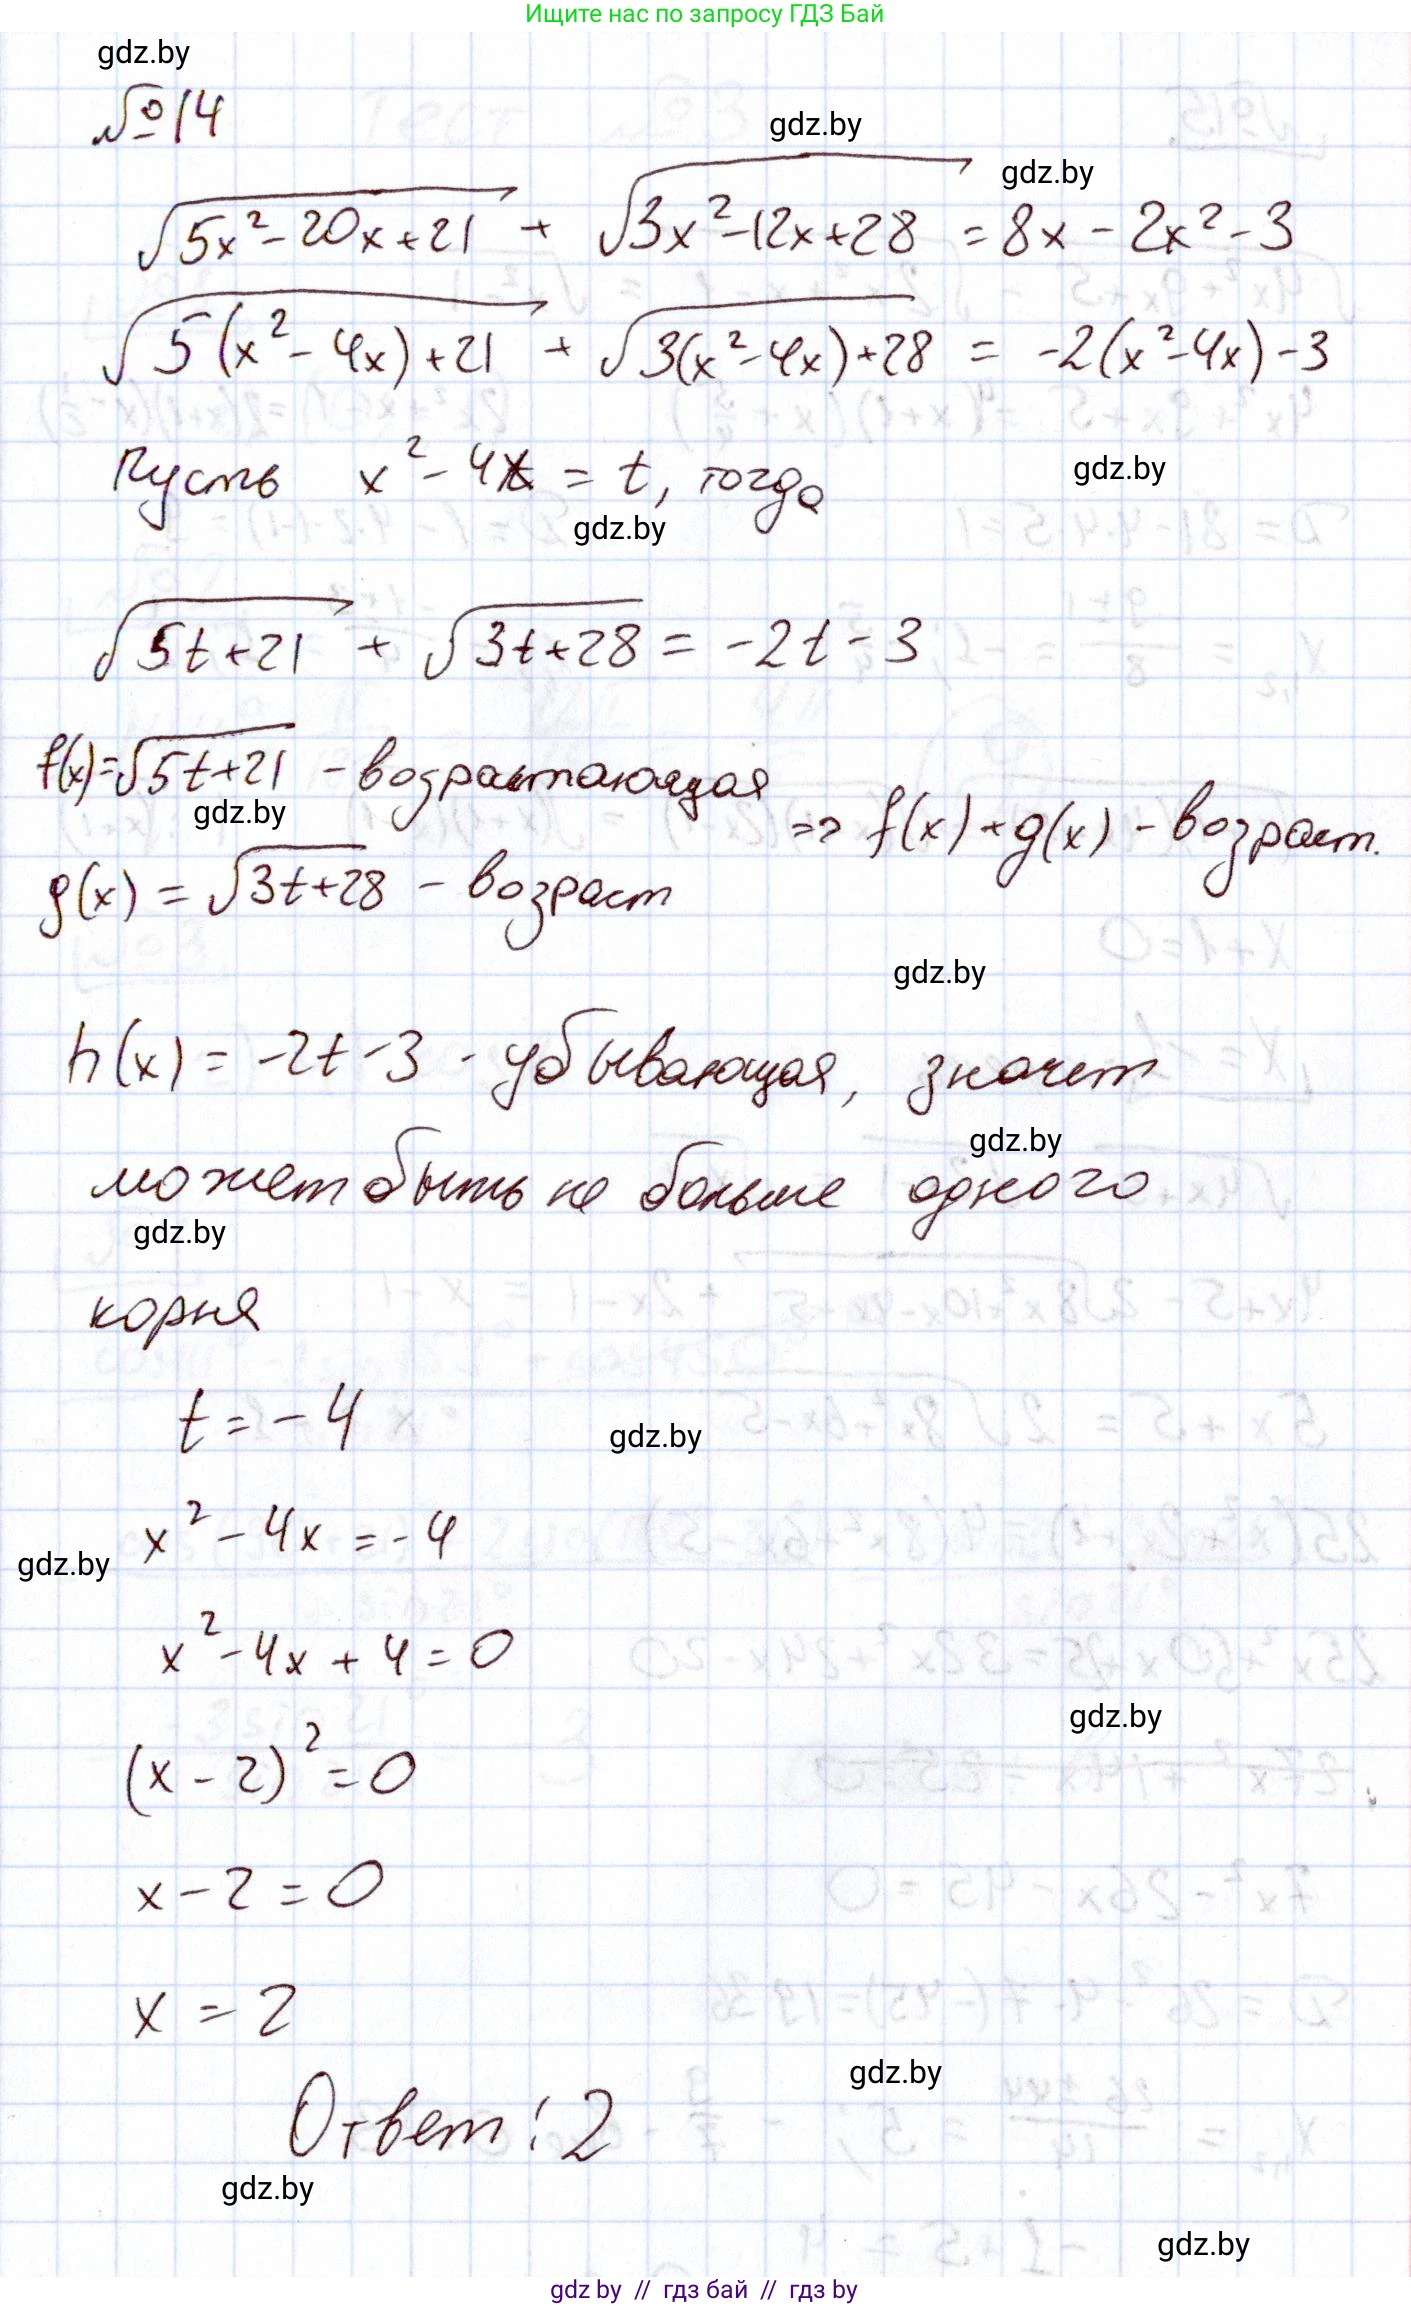 Ищите нас по запросу ГДЗ Бай
gdz.by
№14
gdz.by
gdz.by
√5x²-20x+21 + √3x²-12x+28 = 8x - 2x² - 3
√5(x²-4x)+21 + √3(x²-4x)+28 = -2(x²-4x)-3
Пусть x² - 4x = t, тогда
gdz.by
gdz.by
√5t+21 + √3t+28 = -2t-3
f(x)=√5t+21 - возрастающая
gdz.by
=> f(x)+g(x) - возраст.
g(x) = √3t+28 - возраст
gdz.by
h(x) = -2t-3 - убывающая, значет
gdz.by
может быть не больше одного
gdz.by
корня
t = -4
gdz.by
x² - 4x = -4
gdz.by
x² - 4x + 4 = 0
gdz.by
(x - 2)² = 0
x - 2 = 0
x = 2
gdz.by
Ответ: 2
gdz.by
gdz.by
gdz by // гдз бай // гдз by